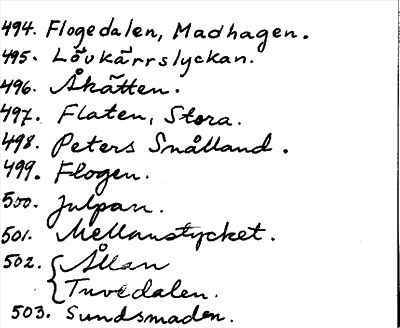 494. Flogedalen, Madhagen.
495. Lövkärrslyckan.
496. Åkätten.
497. Flaten, Stora.
498. Peters Snålland.
499. Flogen.
500. Julpan.
501. Mellanstycket.
502. { Ållan
Tuvedalen.
503. Sundsmaden.